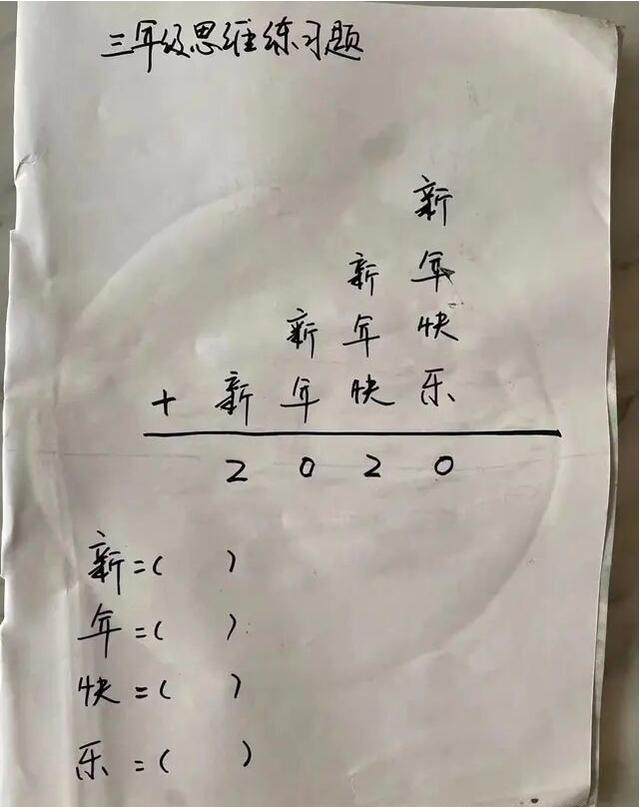 三年级思维练习题
新
新年
新年快
+新年快乐
2020
新=( )
年=( )
快=( )
乐=( )